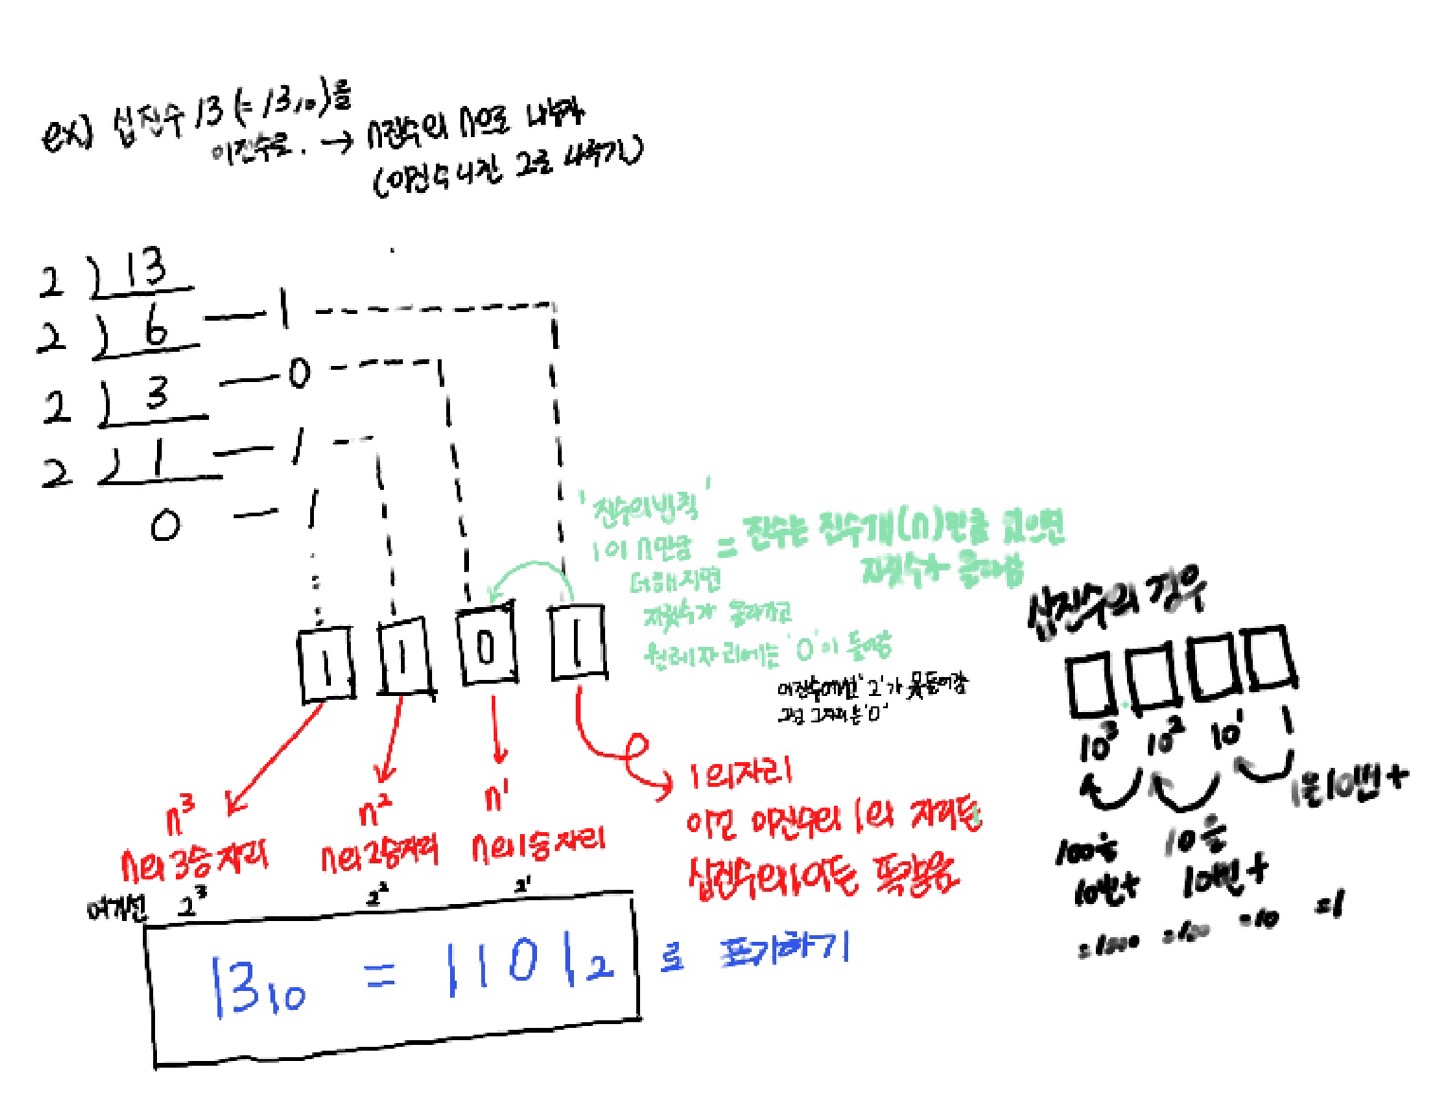 ex) 십진수 13(=13₁₀)를
이진수로. → n진수의 n으로 나누기
(이진수니깐 2로 나누기)
2 ) 13
2 ) 6 — 1
2 ) 3 — 0
2 ) 1 — 1
0 — 1
'진수의법칙'
1이 n만큼 = 진수는 진수개(n)만큼 있으면
더해지면 자릿수가 올라감
자릿수가 올라가고
원래자리에는 '0'이 들어감
이진수에선 '2'가 못들어감
그럼 그자리는 '0'
1 1 0 1
n³ n² n¹ 1의자리
n의3승자리 n의2승자리 n의1승자리 이건 이진수의 1의 자리든
십진수의 1이든 똑같음
여기선 2³ 2² 2¹
13₁₀ = 1101₂ 로 표기하기
십진수의 경우
10³ 10² 10¹ 1
1을10번+
100을 10을
10번+ 10번+
=1000 =100 =10 =1